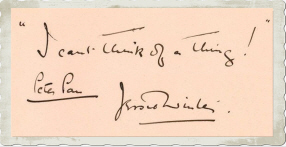 "I can't think of a thing!"
Peter Pan
Jessie Winter.